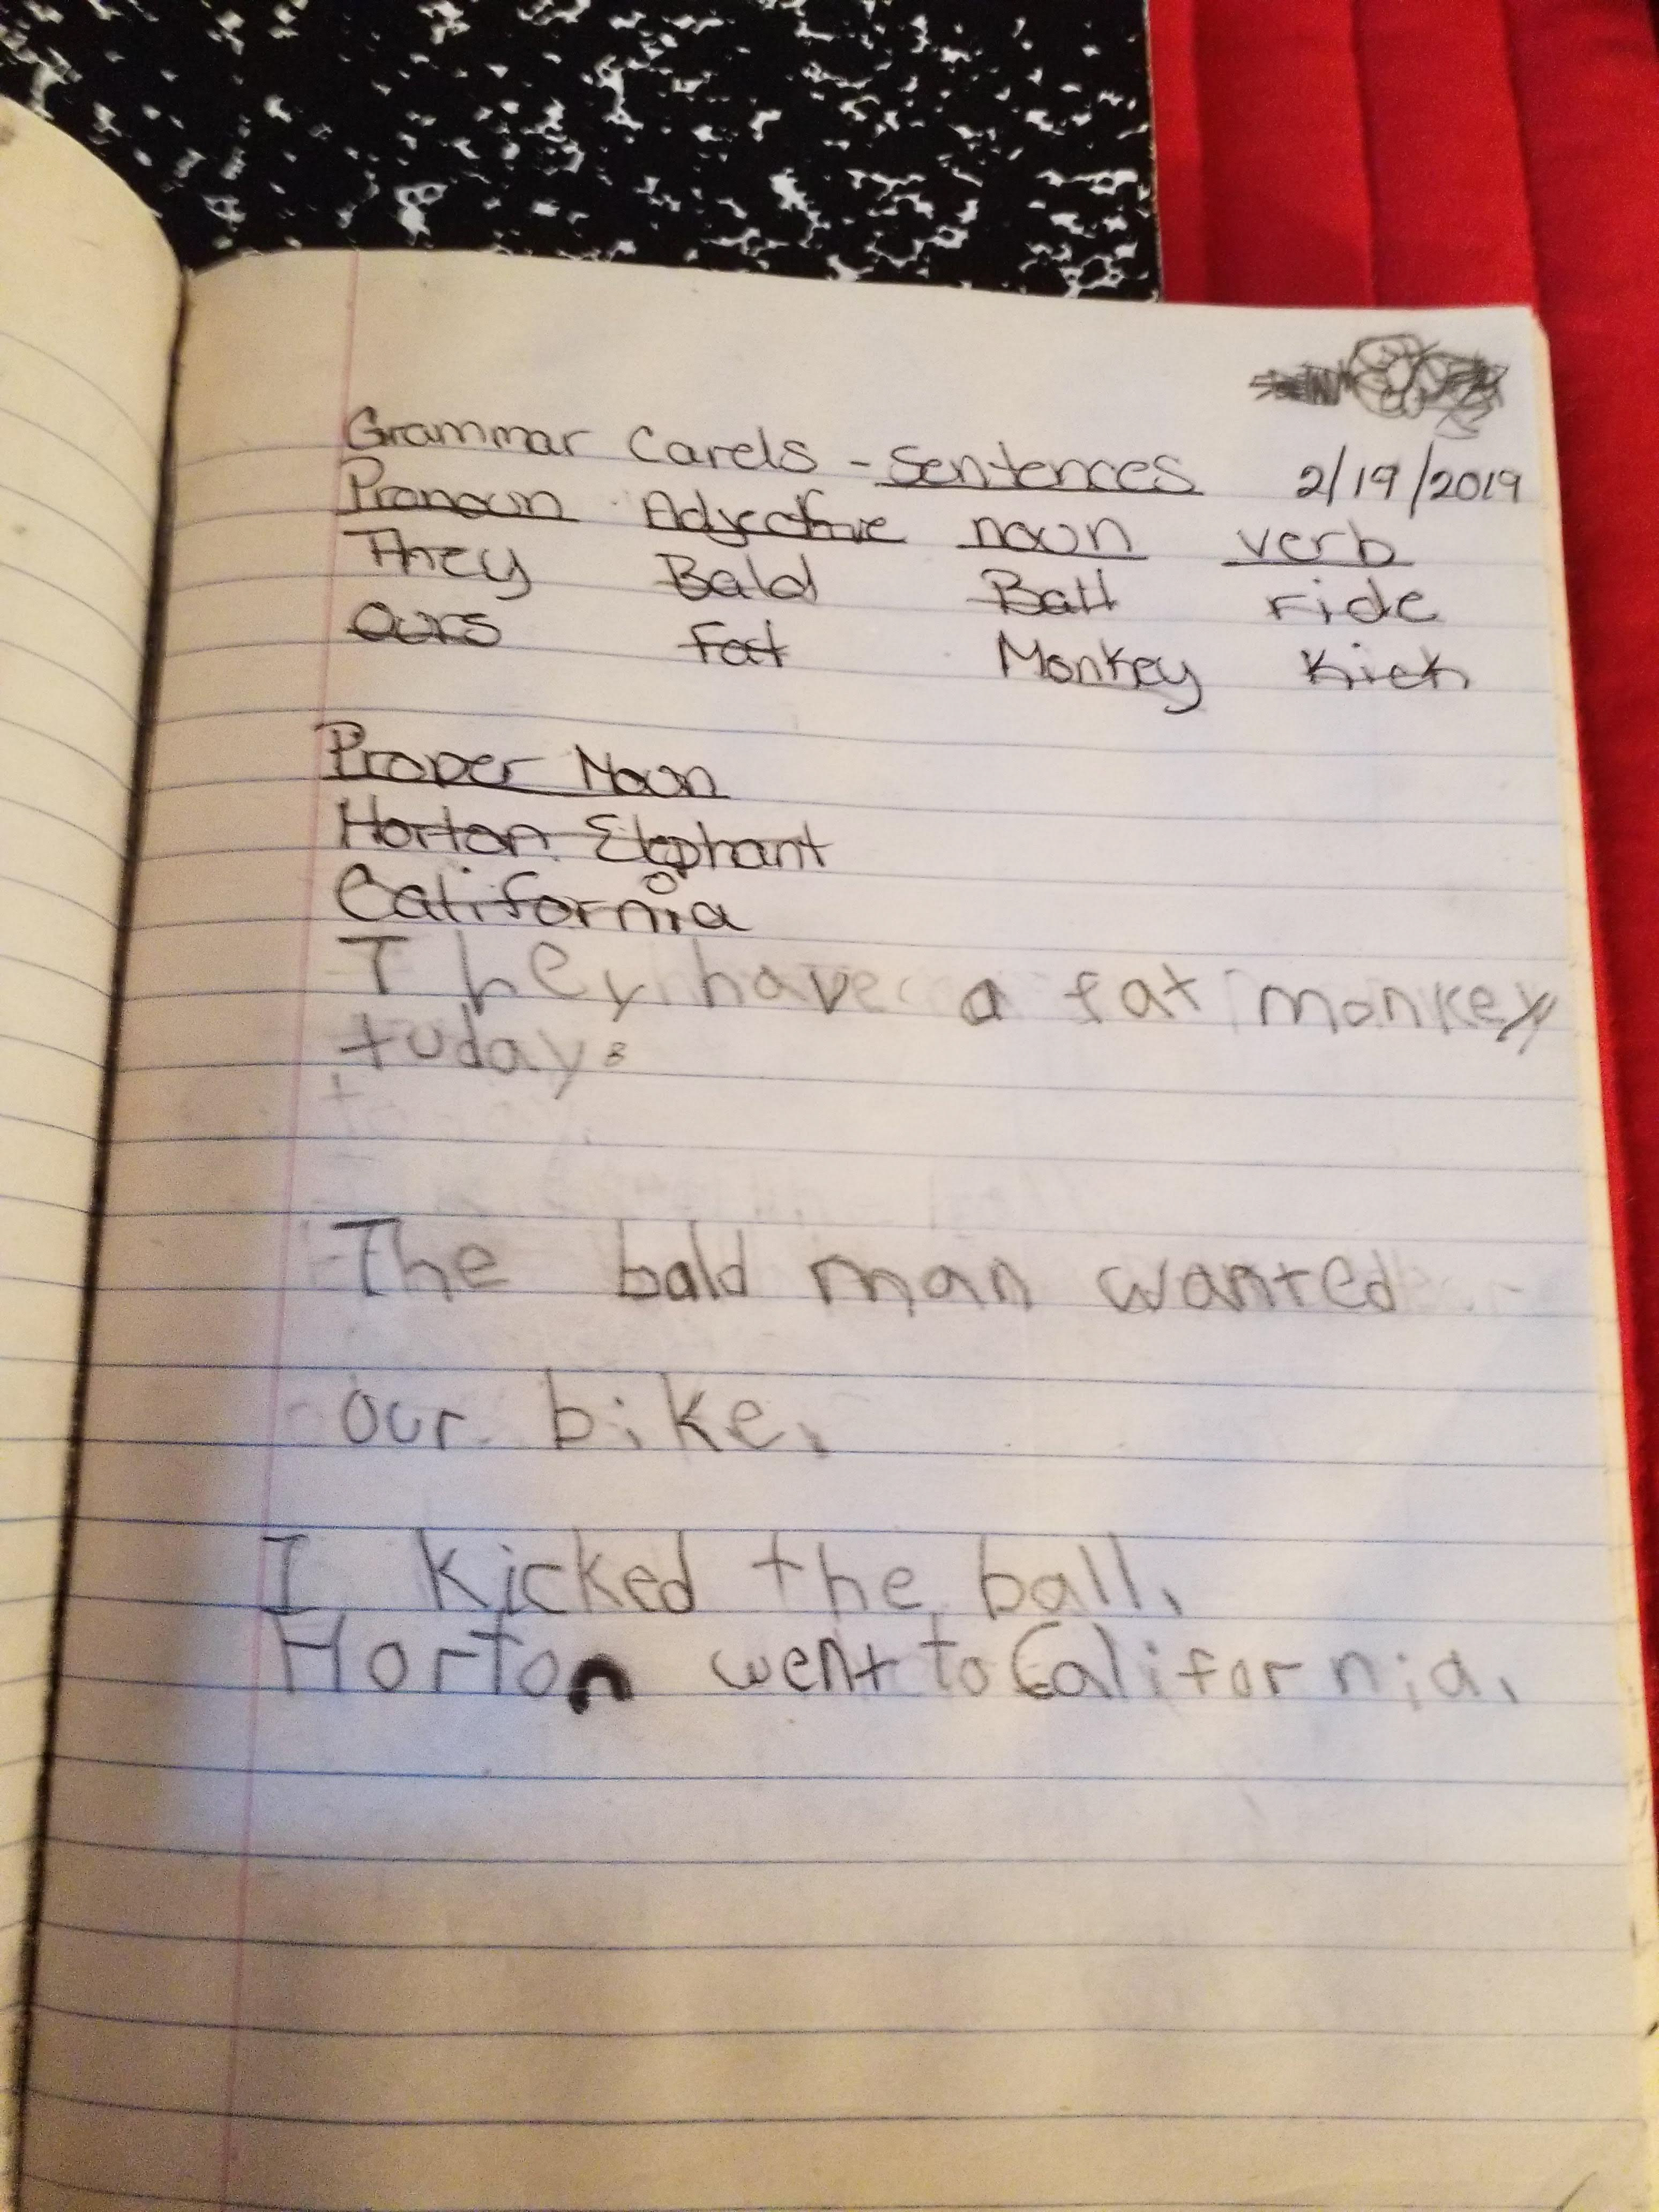 Grammar Cards - Sentences 2/19/2019
Pronoun Adjective noun verb
They Bald Ball ride
Ours Fat Monkey Kick
Proper Noun
Horton Elephant
California
They have a fat monkey
tuday.
The bald man wanted
our bike.
I kicked the ball.
Horton went to California.